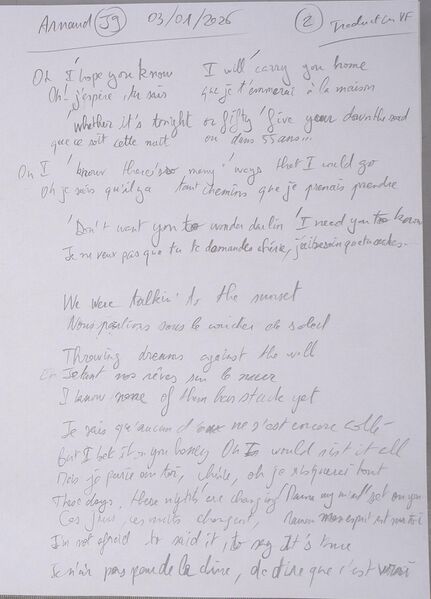 Arnaud J9 03/01/2026 2 Traduction VF
Oh I hope you know I will carry you home
Oh! j'espère, tu sais que je t'emmenai à la maison
Whether it's tonight or fifty five year down the road
que ce soit cette nuit ou dans 55 ans...
Oh I know there's so many ways that I would go
Oh je sais qu'il y a tant chemins que je prenais prendre
Don't want you to wonder darlin I need you to know
Je ne veux pas que tu te demandes chérie, j'ai besoin que tu saches.
We were talkin' to the sunset
Nous partions sous le coucher de soleil
Throwing dreams against the wall
nos rêves sur le mur
I know none of them has stuck yet
Je sais qu'aucun d'eux ne s'est encore collé
But I bet it on you honey Oh I would risk it all
Mais je parie on toi, chérie, oh je risquerai tout
These days, these nights are changing my mind set on you
Ces jours, ces nuits changent, mon esprit est sur toi
I'm not afraid to said it, to say It's true
Je n'ai pas peur de la dire, de dire que c'est vrai